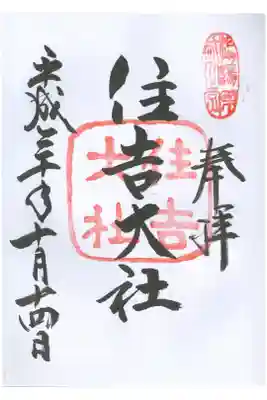 奉拝
住吉大社
住吉大社
平成三十年十月十四日